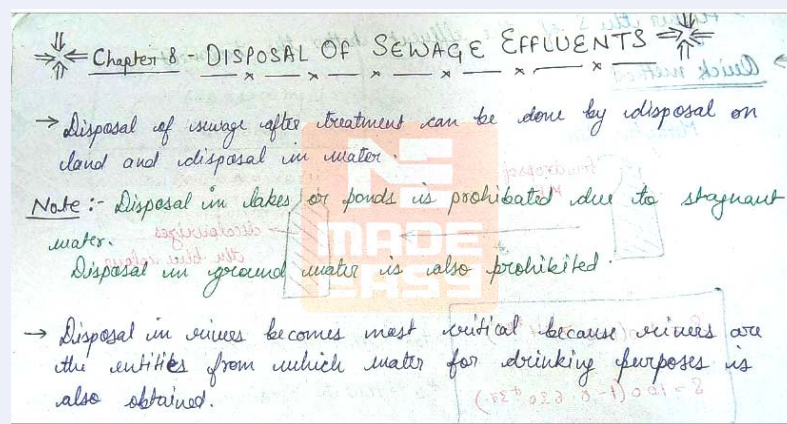 Chapter 8 - DISPOSAL OF SEWAGE EFFLUENTS
→ Disposal of sewage after treatment can be done by disposal on
land and disposal in water.
Note :- Disposal in lakes or ponds is prohibated due to stagnant
water.
Disposal in ground water is also prohibited.
MADE
EASY
→ Disposal in rivers becomes most critical because rivers are
the entities from which water for drinking purposes is
also obtained.